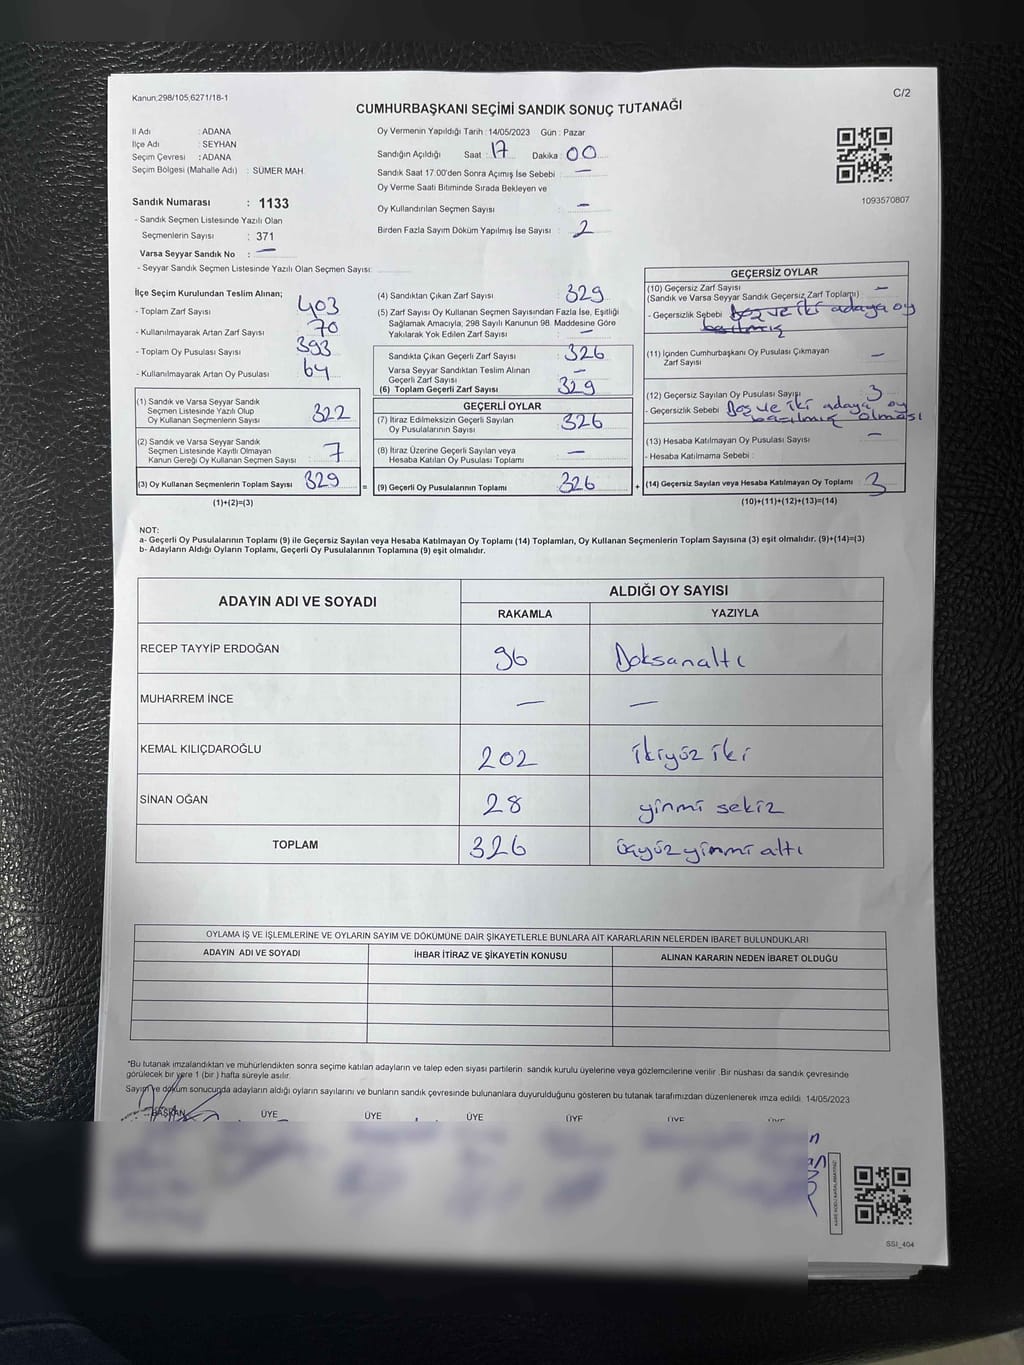 Kanun:298/105,6271/18-1
C/2
CUMHURBAŞKANI SEÇİMİ SANDIK SONUÇ TUTANAĞI
İl Adı : ADANA
İlçe Adı : SEYHAN
Seçim Çevresi : ADANA
Seçim Bölgesi (Mahalle Adı) : SÜMER MAH.
Sandık Numarası : 1133
- Sandık Seçmen Listesinde Yazılı Olan
Seçmenlerin Sayısı : 371
Varsa Seyyar Sandık No : —
- Seyyar Sandık Seçmen Listesinde Yazılı Olan Seçmen Sayısı:
Oy Vermenin Yapıldığı Tarih : 14/05/2023 Gün : Pazar
Sandığın Açıldığı Saat : 17 Dakika : 00
Sandık Saat 17.00'den Sonra Açımış İse Sebebi : —
Oy Verme Saati Bitiminde Sırada Bekleyen ve
Oy Kullandırılan Seçmen Sayısı : —
Birden Fazla Sayım Döküm Yapılmış İse Sayısı : 2
1093570807
İlçe Seçim Kurulundan Teslim Alınan;
- Toplam Zarf Sayısı : 403
- Kullanılmayarak Artan Zarf Sayısı : 70
- Toplam Oy Pusulası Sayısı : 393
- Kullanılmayarak Artan Oy Pusulası : 64
(1) Sandık ve Varsa Seyyar Sandık
Seçmen Listesinde Yazılı Olup
Oy Kullanan Seçmenlerin Sayısı : 322
(2) Sandık ve Varsa Seyyar Sandık
Seçmen Listesinde Kayıtlı Olmayan
Kanun Gereği Oy Kullanan Seçmen Sayısı : 7
(3) Oy Kullanan Seçmenlerin Toplam Sayısı : 329
(1)+(2)=(3)
=
(4) Sandıktan Çıkan Zarf Sayısı : 329
(5) Zarf Sayısı Oy Kullanan Seçmen Sayısından Fazla İse, Eşitliği
Sağlamak Amacıyla; 298 Sayılı Kanunun 98. Maddesine Göre
Yakılarak Yok Edilen Zarf Sayısı : —
Sandıkta Çıkan Geçerli Zarf Sayısı : 326
Varsa Seyyar Sandıktan Teslim Alınan
Geçerli Zarf Sayısı : —
(6) Toplam Geçerli Zarf Sayısı : 329
GEÇERLİ OYLAR
(7) İtiraz Edilmeksizin Geçerli Sayılan
Oy Pusulalarının Sayısı : 326
(8) İtiraz Üzerine Geçerli Sayılan veya
Hesaba Katılan Oy Pusulası Toplamı : —
(9) Geçerli Oy Pusulalarının Toplamı : 326
+
GEÇERSİZ OYLAR
(10) Geçersiz Zarf Sayısı : —
(Sandık ve Varsa Seyyar Sandık Geçersiz Zarf Toplamı)
- Geçersizlik Sebebi : Boş ve iki adaya oy
basılmış
(11) İçinden Cumhurbaşkanı Oy Pusulası Çıkmayan
Zarf Sayısı : —
(12) Geçersiz Sayılan Oy Pusulası Sayısı : 3
- Geçersizlik Sebebi : Boş ve iki adaya oy
basılmış olması
(13) Hesaba Katılmayan Oy Pusulası Sayısı : —
- Hesaba Katılmama Sebebi :
(14) Geçersiz Sayılan veya Hesaba Katılmayan Oy Toplamı : 3
(10)+(11)+(12)+(13)=(14)
NOT:
a- Geçerli Oy Pusulalarının Toplamı (9) ile Geçersiz Sayılan veya Hesaba Katılmayan Oy Toplamı (14) Toplamları, Oy Kullanan Seçmenlerin Toplam Sayısına (3) eşit olmalıdır. (9)+(14)=(3)
b- Adayların Aldığı Oyların Toplamı, Geçerli Oy Pusulalarının Toplamına (9) eşit olmalıdır.
ADAYIN ADI VE SOYADI
ALDIĞI OY SAYISI
RAKAMLA YAZIYLA
RECEP TAYYİP ERDOĞAN 96 Doksanaltı
MUHARREM İNCE — —
KEMAL KILIÇDAROĞLU 202 ikiyüz iki
SİNAN OĞAN 28 yirmi sekiz
TOPLAM 326 üçyüz yirmi altı
OYLAMA İŞ VE İŞLEMLERİNE VE OYLARIN SAYIM VE DÖKÜMÜNE DAİR ŞİKAYETLERLE BUNLARA AİT KARARLARIN NELERDEN İBARET BULUNDUKLARI
ADAYIN ADI VE SOYADI İHBAR İTİRAZ VE ŞİKAYETİN KONUSU ALINAN KARARIN NEDEN İBARET OLDUĞU
*Bu tutanak imzalandıktan ve mühürlendikten sonra seçime katılan adayların ve talep eden siyasi partilerin sandık kurulu üyelerine veya gözlemcilerine verilir .Bir nüshası da sandık çevresinde
görülecek bir yere 1 (bir ) hafta süreyle asılır.
Sayım ve döküm sonucunda adayların aldığı oyların sayılarını ve bunların sandık çevresinde bulunanlara duyurulduğunu gösteren bu tutanak tarafımızdan düzenlenerek imza edildi. 14/05/2023
BAŞKAN ÜYE ÜYE ÜYE ÜYE ÜYE ÜYE
SSI_404